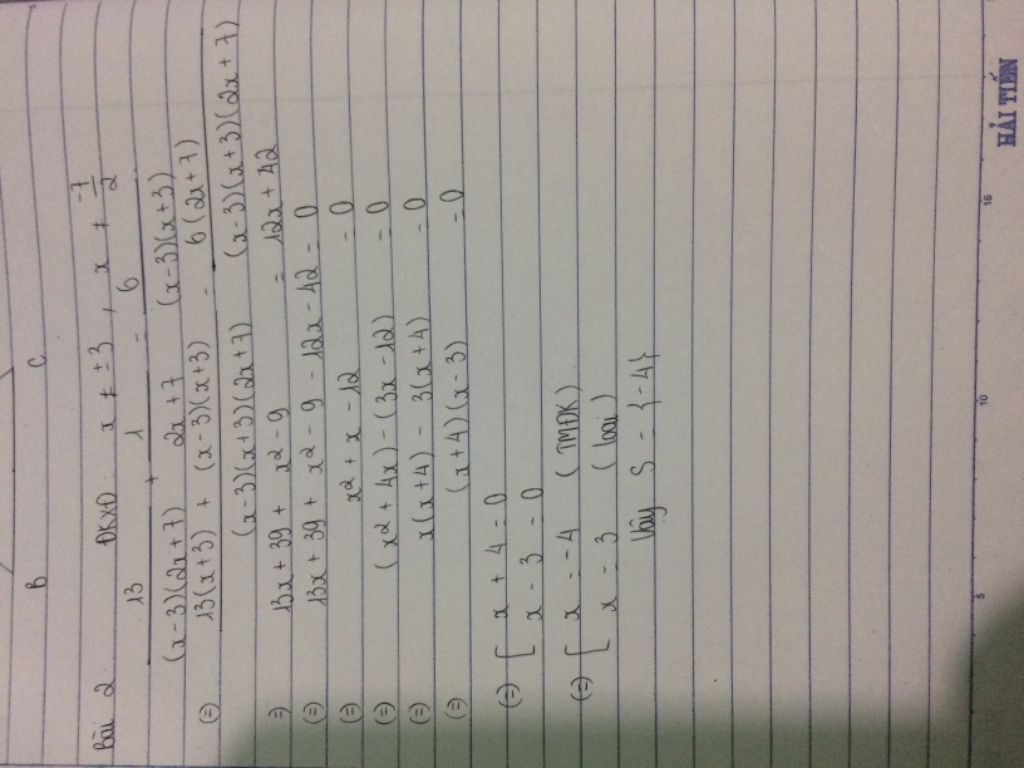 B C
Bài 2 ĐKXĐ: x ≠ ±3, x ≠ -7/2
13/((x-3)(2x+7)) + 1/(2x+7) = 6/((x-3)(x+3))
(=) (13(x+3) + (x-3)(x+3))/((x-3)(x+3)(2x+7)) = 6(2x+7)/((x-3)(x+3)(2x+7))
=) 13x + 39 + x² - 9 = 12x + 42
(=) 13x + 39 + x² - 9 - 12x - 42 = 0
(=) x² + x - 12 = 0
(=) (x² + 4x) - (3x - 12) = 0
(=) x(x+4) - 3(x+4) = 0
(=) (x+4)(x-3) = 0
(=) [ x + 4 = 0
x - 3 = 0
(=) [ x = -4 (TMĐK)
x = 3 (loại)
Vậy S = {-4}
5 10 15
HẢI TIẾN